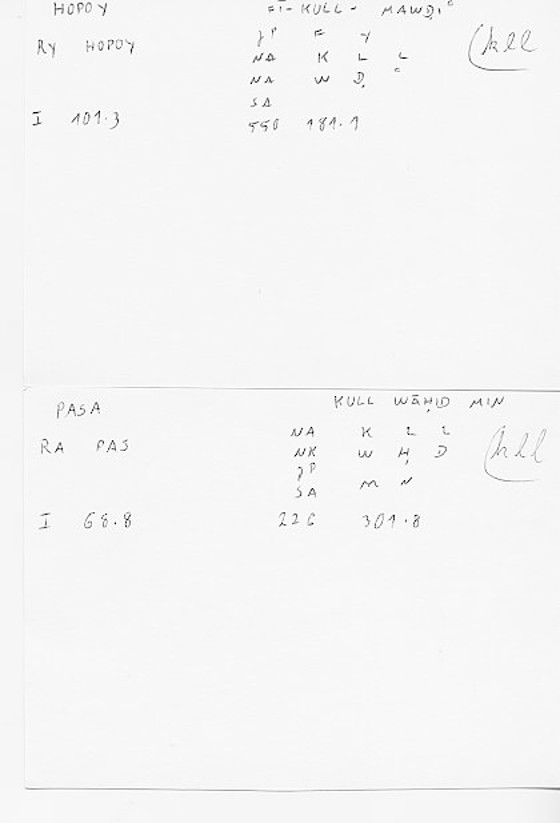 HOPOY FĪ-KULL-MAWḌIʿ
RY HOPOY
γP F Y
NA K L L
NA W Ḍ ʿ
SA
(kll
I 101.3 550 181.1
PASA KULL WĀḤID MIN
RA PAS
NA K L L
NK W Ḥ D
γP
SA M N
(kll
I 68.8 226 301.8